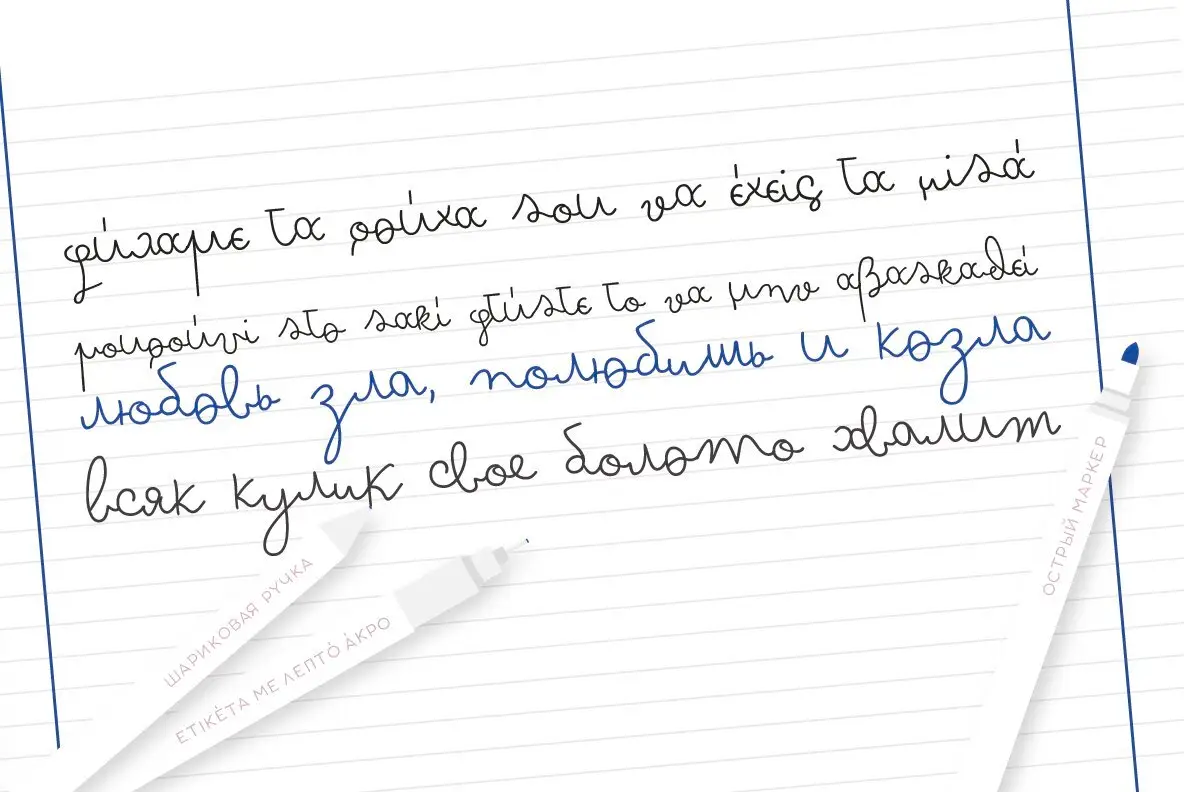 φύλαμε τα ρούχα σου να έχεις τα μισά
γουρούνι στο σακί φτύστε το να μην αβασκαθεί
любовь зла, полюбишь и козла
всяк кулик свое болото хвалит
ШАРИКОВАЯ РУЧКА
ΕΤΙΚΈΤΑ ΜΕ ΛΕΠΤΌ ΆΚΡΟ
ОСТРЫЙ МАРКЕР